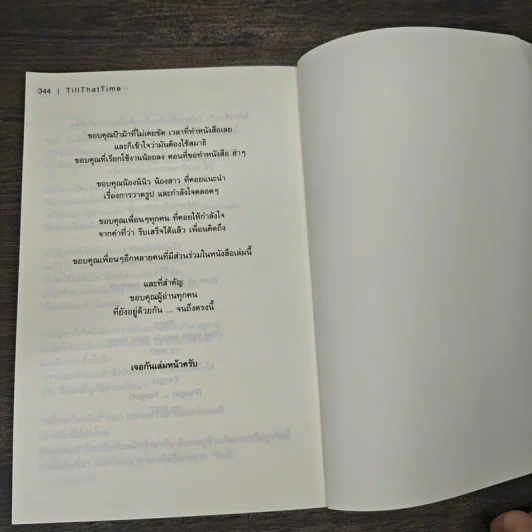 344 | TillThatTime
ขอบคุณป๊าม้าที่ไม่เคยขัด เวลาที่ทำหนังสือเลย
และก็เข้าใจว่ามันต้องใช้สมาธิ
ขอบคุณที่เรียกใช้งานน้อยลง ตอนที่ขอทำหนังสือ ฮ่าๆ
ขอบคุณน้องนีนิว น้องสาว ที่คอยแนะนำ
เรื่องการวาดรูป และกำลังใจตลอดๆ
ขอบคุณเพื่อนๆทุกคน ที่คอยให้กำลังใจ
จากคำที่ว่า รีบเสร็จได้แล้ว เพื่อนคิดถึง
ขอบคุณเพื่อนๆอีกหลายคนที่มีส่วนร่วมในหนังสือเล่มนี้
และที่สำคัญ
ขอบคุณผู้อ่านทุกคน
ที่ยังอยู่ด้วยกัน ... จนถึงตรงนี้
เจอกันเล่มหน้าครับ